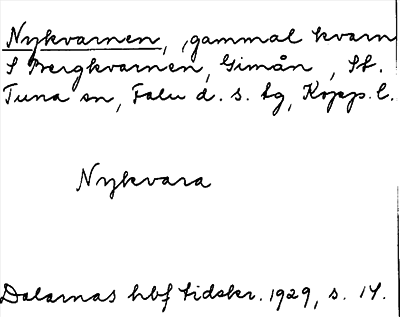 Nykvarnen, gammal kvarn
S Bergkvarnen, Gimån, St.
Tuna sn, Falu d. s. tg, Kopp. l.
Nykvara
Dalarnas hbf tidskr. 1929, s. 14.